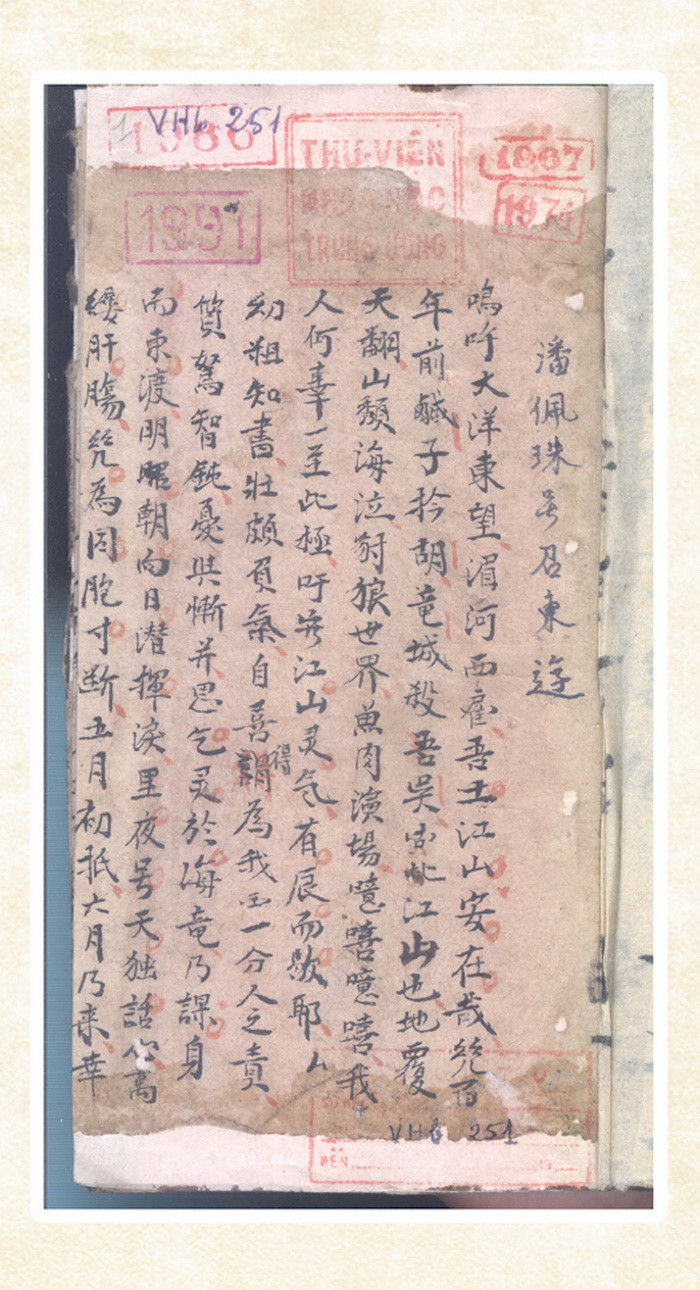 VHb. 251
1986
THƯ-VIỆN
TRUNG ƯƠNG
1967
1971
1991
潘佩珠号召東逰
嗚吁大洋東望湄河西吾土江山安在哉百
年前鹹子扲胡竜城殺吾此江山也地覆
天翻山頽海泣豺狼世界魚肉演場噫嘻噫嘻我
人何辜一至此極吁江山灵气有辰而歇耶厶
幼粗知書壯頗負氣自喜謂得為我囯一分人之責
質駑智鈍憂與慚并思乞灵於海竜乃謀身
而東渡明朝向日潜揮淚里夜号天独話心萬
縷肝腸為同胞寸断五月初抵六月乃来幸
VHb 251
ĐẾN